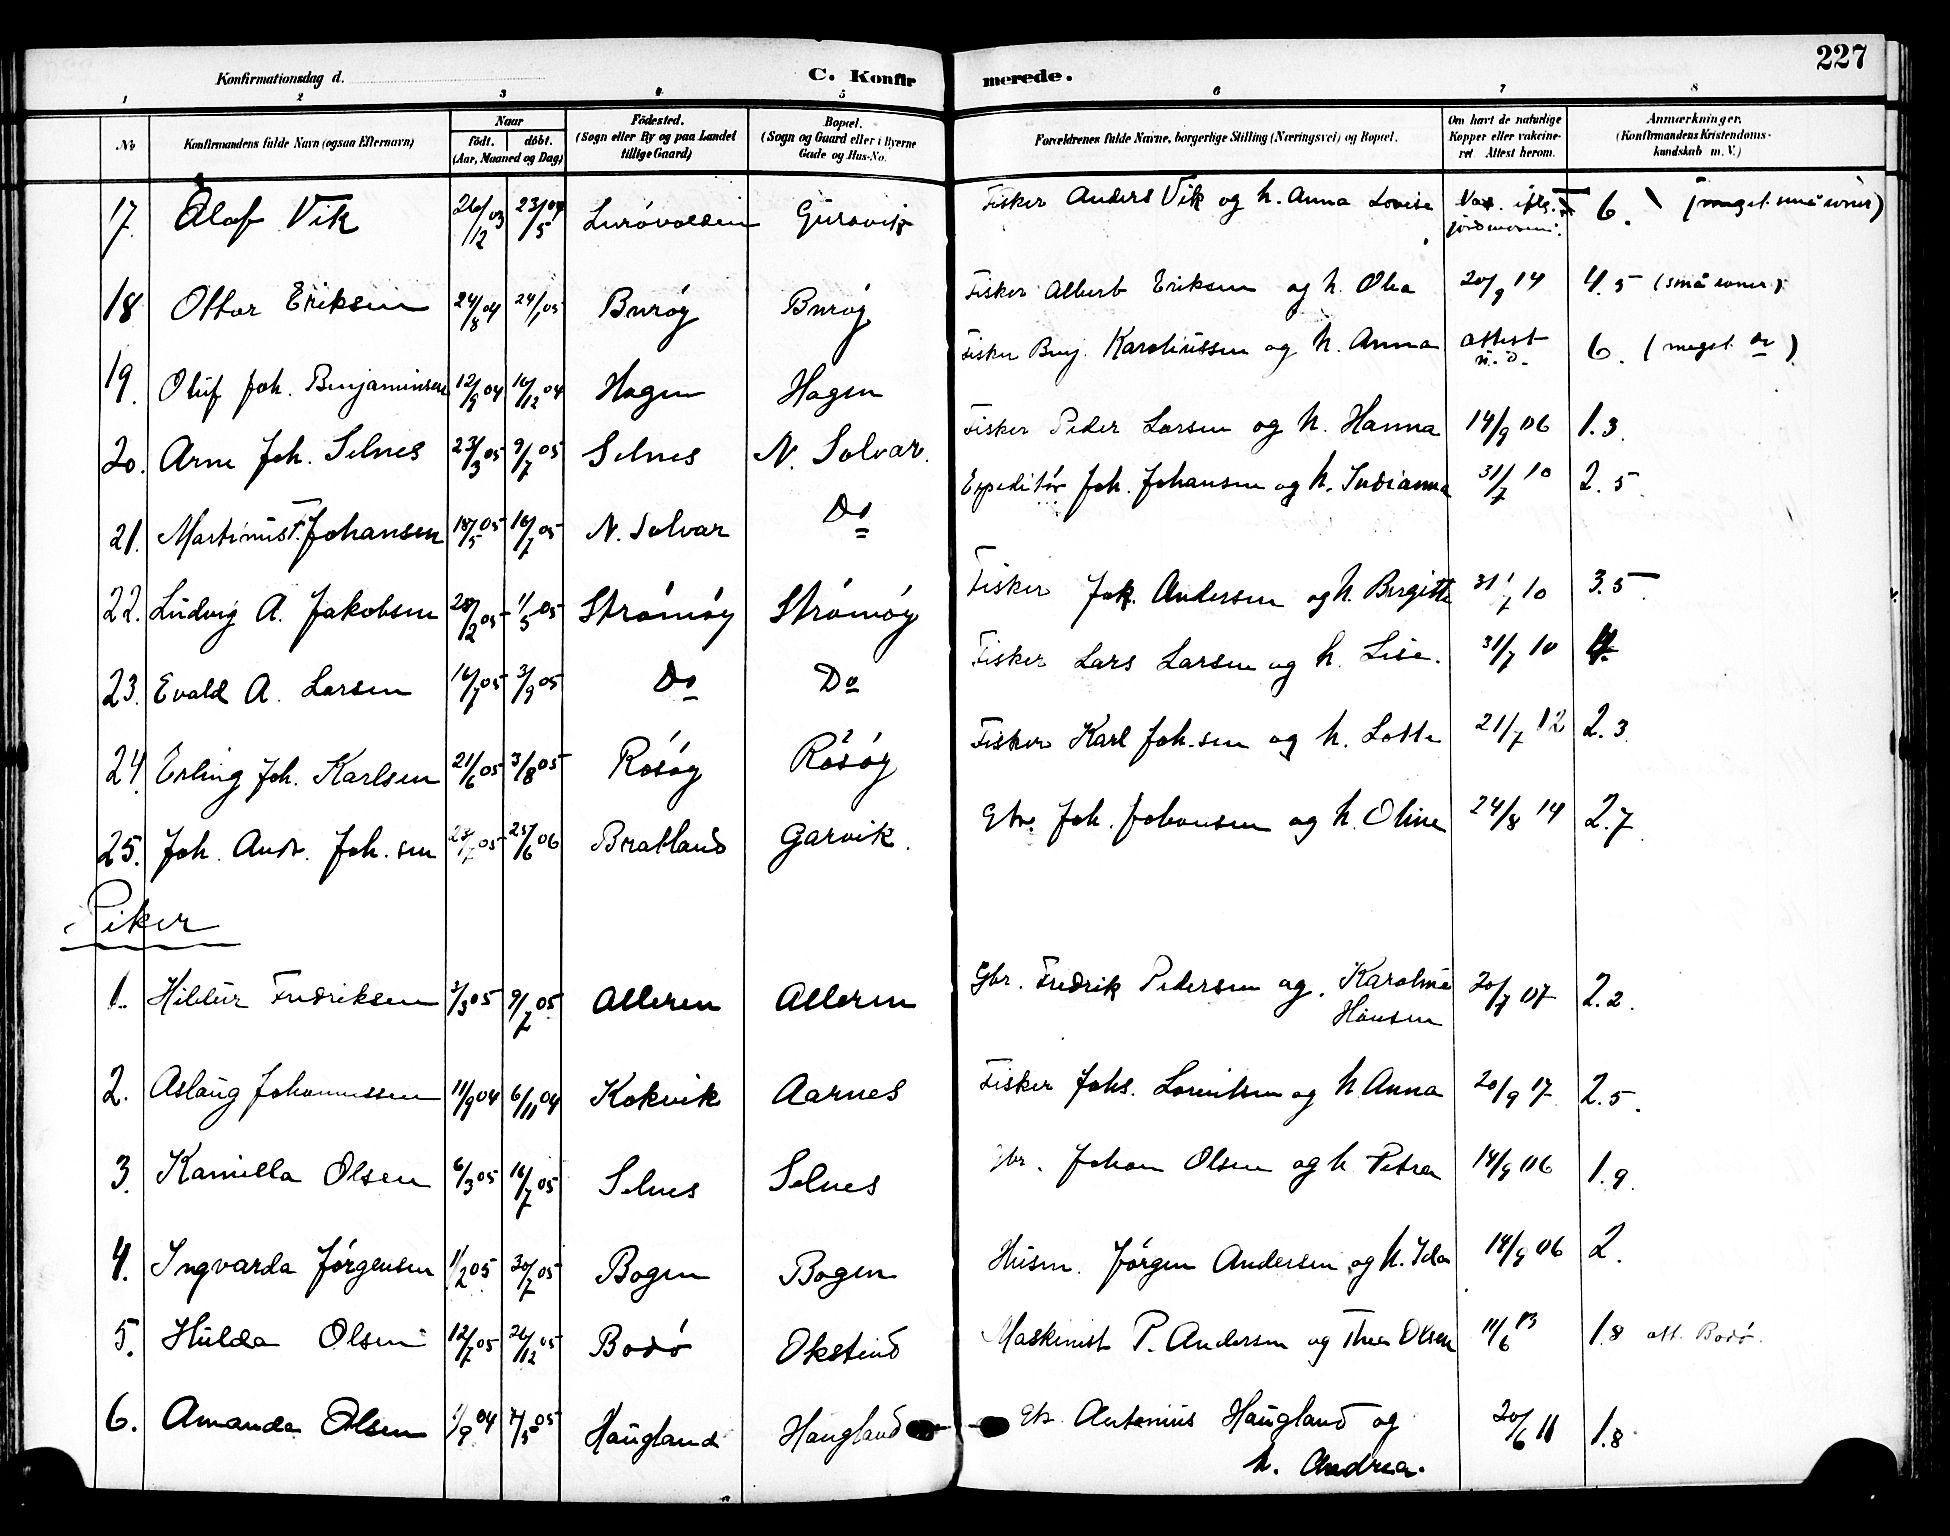 227
Konfirmationsdag d.
C. Konfirmerede.
1 2 3 4 5 6 7 8
No
Konfirmandens fulde Navn (ogsaa Efternavn)
Naar
født. døbt.
(Aar, Maaned og Dag)
Fødested.
(Sogn eller By og paa Landet
tillige Gaard)
Bopæl.
(Sogn og Gaard eller i Byerne
Gade og Hus-No.
Forældrenes fulde Navne, borgerlige Stilling (Næringsvei) og Bopæl.
Om havt de naturlige
Kopper eller vakcine-
ret Attest herom.
Anmærkninger.
(Konfirmandens Kristendoms-
kundskab m. V.)
17. Olaf Vik 26/12 03 23/5 04 Lurövolden Gursvik Fisker Anders Vik og h. Anna Lovise 6. (meget små evner)
18. Ottar Eriksen 24/8 04 24/1 05 Buröy Buröy Fisker Albert Eriksen og h. Olea 20/9 14 4.5 (små evner)
19. Oluf Joh. Benjaminsen 12/9 04 16/12 04 Hagen Hagen Fisker Benj. Karolíussen og h. Anna attest n. d. 6. (meget do)
20. Arne Joh. Selnes 23/3 05 9/7 05 Selnes N. Solvær. Fisker Peder Larsen og h. Hanna 14/9 06 1.3.
21. Martinus F. Johansen 18/5 05 16/7 05 N. Solvær Do Expeditör Joh. Johansen og h. Indianna 31/7 10 2.5
22. Ludvig A. Jakobsen 28/2 05 1/5 05 Strömöy Strömöy Fisker Jak. Andersen og h. Bergitte 31/7 10 3.5
23. Evald A. Larsen 16/7 05 3/9 05 Do Do Fisker Lars Larsen og h. Lise. 31/7 10 4.
24. Erling Joh. Karlsen 21/6 05 3/8 05 Rösöy Rösöy Fisker Karl Joh.sen og h. Lotte 21/7 12 2.3
25. Joh. Andr. Joh.sen 25/6 06 Bratland Garvik. Joh. Johansen og h. Oline 24/8 14 2.7
Piker
1. Hildur Fredriksen 3/3 05 9/7 05 Alleren Alleren Gbr. Fredrik Pedersen og Karoline
Hansen 20/7 07 2.2.
2. Aslaug Johannessen 11/9 04 6/11 04 Kokvik Aarnes Fisker Johs. Lorentsen og h. Anna 20/9 17 2.5.
3. Kamilla Olsen 6/3 05 16/7 05 Selnes Selnes Gbr. Johan Olsen og h. Petra 14/9 06 1.9.
4. Ingvarda Jörgensen 1/2 05 30/7 05 Bogen Bogen Husm. Jörgen Andersen og h. Ida 14/9 06 2.
5. Hulda Olsen 12/7 05 26/12 05 Bodö Okstind Maskinist P. Andersen og Thea Olsen 11/6 13 1.8 att. Bodö.
6. Amanda Olsen 1/9 04 7/5 05 Haugland Haugland Antonius Haugland og
h. Andrea. 20/6 11 1.8